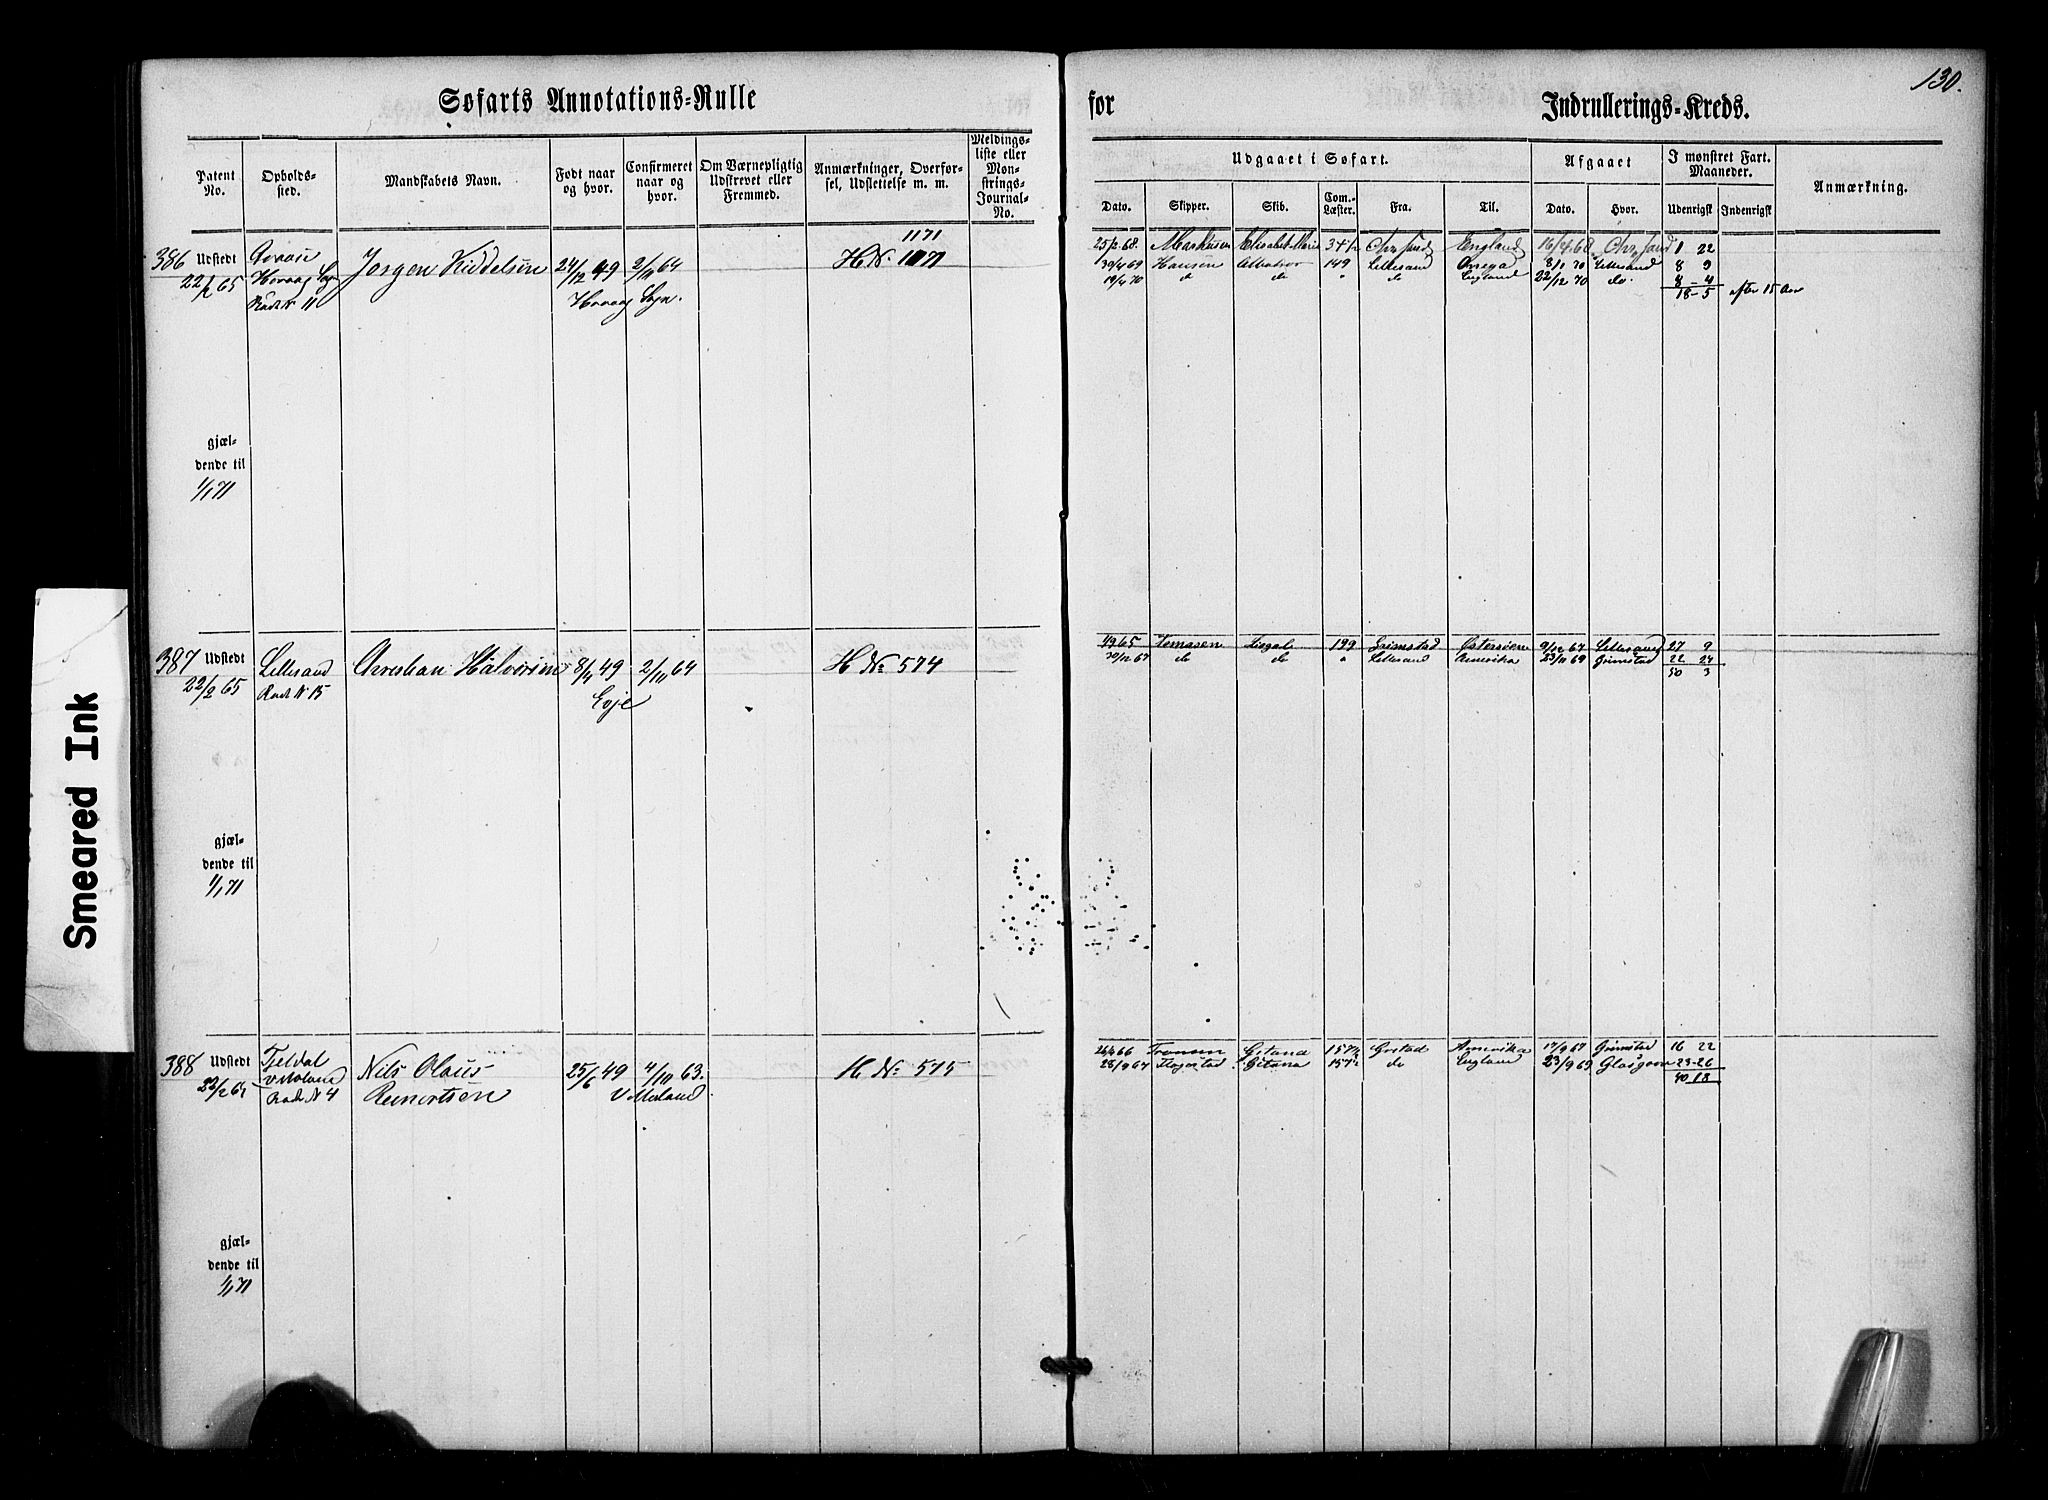 130.
Søfarts Annotations-Rulle for Indrullerings-Kreds.
Patent No. Opholds-sted. Mandskabets Navn. Født naar og hvor. Confirmeret naar og hvor. Om Værnepligtig Udskrevet eller Fremmed. Anmærkninger, Overførsel, Udslettelse m. m. Meldingsliste eller Mønstrings-Journal-No.
Udgaaet i Søfart. Afgaaet I mønstret Fart. Maaneder. Anmærkning.
Dato. Skipper. Skib. Com.-Læster. Fra. Til. Dato. Hvor. Udenrigst Indenrigst
1171
386 Udstedt Jørgen Kiddelsen 24/12 49 2/11 64 H. No 1071
22/2 65 Høvaag Sogn Høvaag Sogn.
Rode No 11
25/2 68. Markusen Elisabet Marie 34 1/2 Chr.sand England 16/4 68 Chr.sand 1 22
30/4 69 Hansen 149 Lillesand 8/1 70 Lillesand 8 9
19/4 70 do do " do England 22/12 70 do. 8 - 4
18 - 5 after 15 Aar
gjæl-
dende til
1/1 71
387 Udstedt Lillesand Halvorsen 8/4 49 2/11 64 H No 574
22/2 65 Rode No 15 Evje
4/9 65 199 Grimstad Østersøen 9/12 67 Lillesand 27 9
30/12 67 do do " Lillesand Amerika 23/11 69 Grimstad 22 24
50 3
gjæl-
dende til
1/1 71
388 Udstedt Tjeldal Nils Olaus 25/6 49 4/10 63. H No 575
22/2 65 V Moland Reinertsen V Moland
Rode No 4
26/4 66 Gitana 157 1/2 Grstad Amerika 17/9 67 Grimstad 16 22
25/9 67 Gitana 157 1/2 do England 23/9 69 Glasgow 23-26
40 18
gjæl-
dende til
1/1 71
Smeared Ink